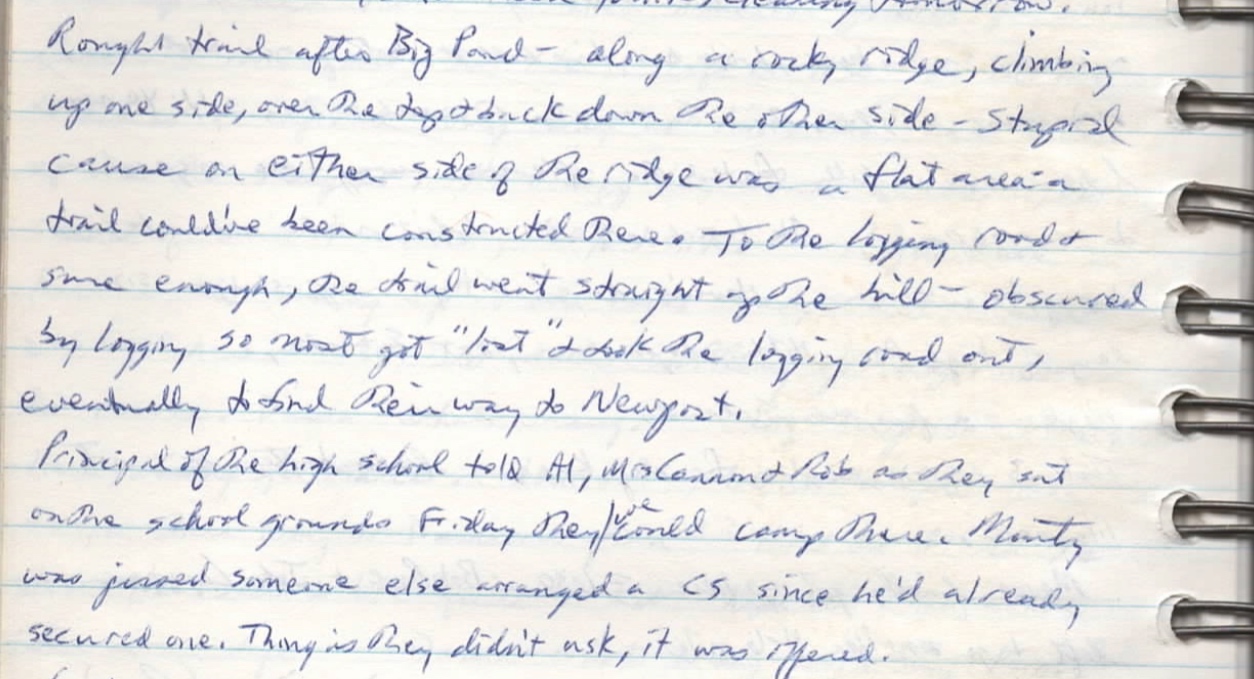 clearing tomorrow.
Rought trail after Big Pond - along a rocky ridge, climbing
up one side, over the top & back down the other side - Stupid
cause on either side of the ridge was a flat area - a
trail could've been constructed there. To the logging road &
sure enough, the trail went straight up the hill - obscured
by logging so most got "lost" & took the logging road out,
eventually to find their way to Newport.
Principal of the high school told Al, Mrs Cannon & Rob as they sat
on the school grounds Friday they/we could camp there. Monty
was pissed someone else arranged a CS since he'd already
secured one. Thing is they didn't ask, it was offered.